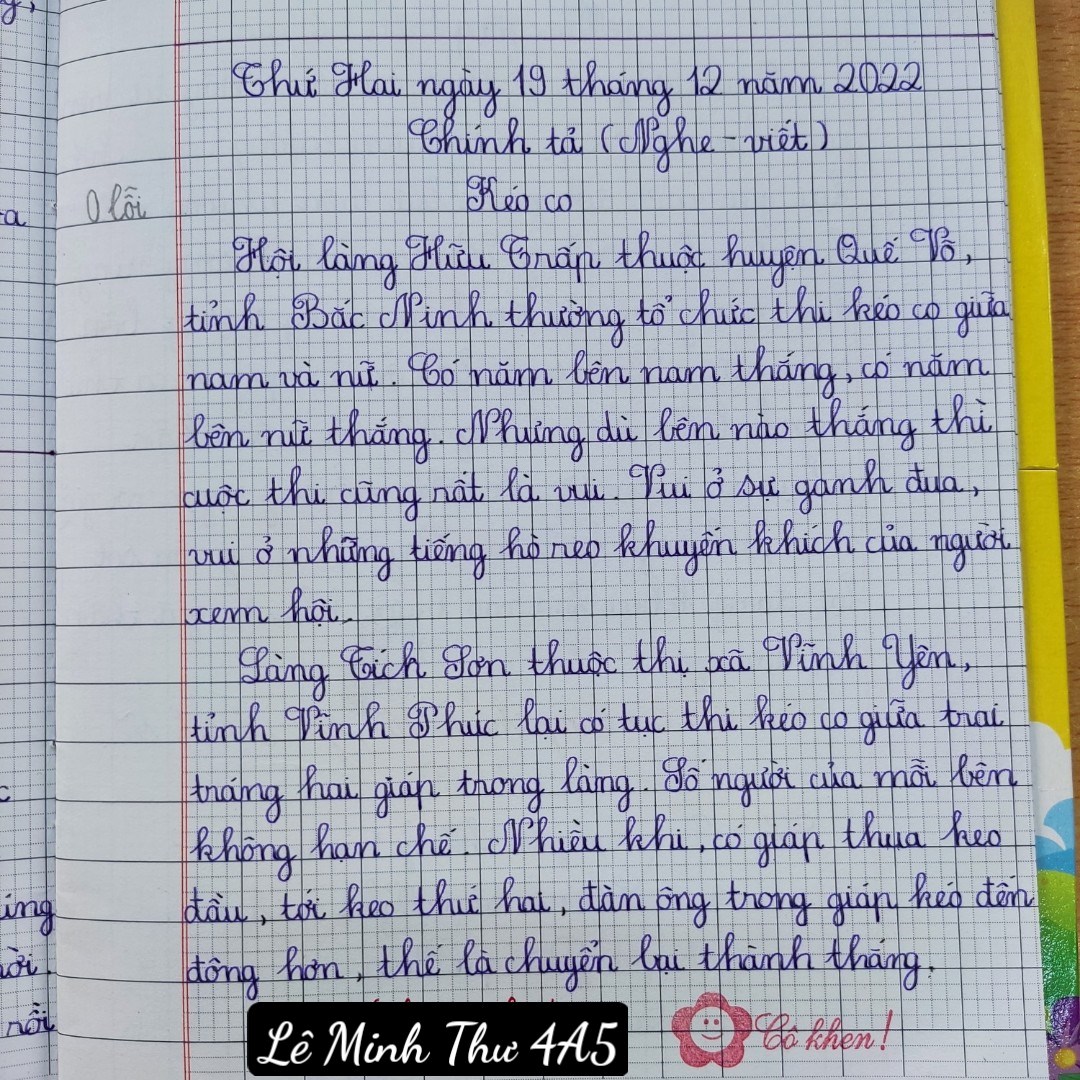 Thứ Hai ngày 19 tháng 12 năm 2022
Chính tả (Nghe - viết)
0 lỗi
Kéo co
Hội làng Hữu Trấp thuộc huyện Quế Võ,
tỉnh Bắc Ninh thường tổ chức thi kéo co giữa
nam và nữ. Có năm bên nam thắng, có năm
bên nữ thắng. Nhưng dù bên nào thắng thì
cuộc thi cũng rất là vui. Vui ở sự ganh đua,
vui ở những tiếng hò reo khuyến khích của người
xem hội.
Làng Tích Sơn thuộc thị xã Vĩnh Yên,
tỉnh Vĩnh Phúc lại có tục thi kéo co giữa trai
tráng hai giáp trong làng. Số người của mỗi bên
không hạn chế. Nhiều khi, có giáp thua keo
đầu, tới keo thứ hai, đàn ông trong giáp kéo đến
đông hơn, thế là chuyển bại thành thắng.
Lê Minh Thư 4A5
Cô khen!